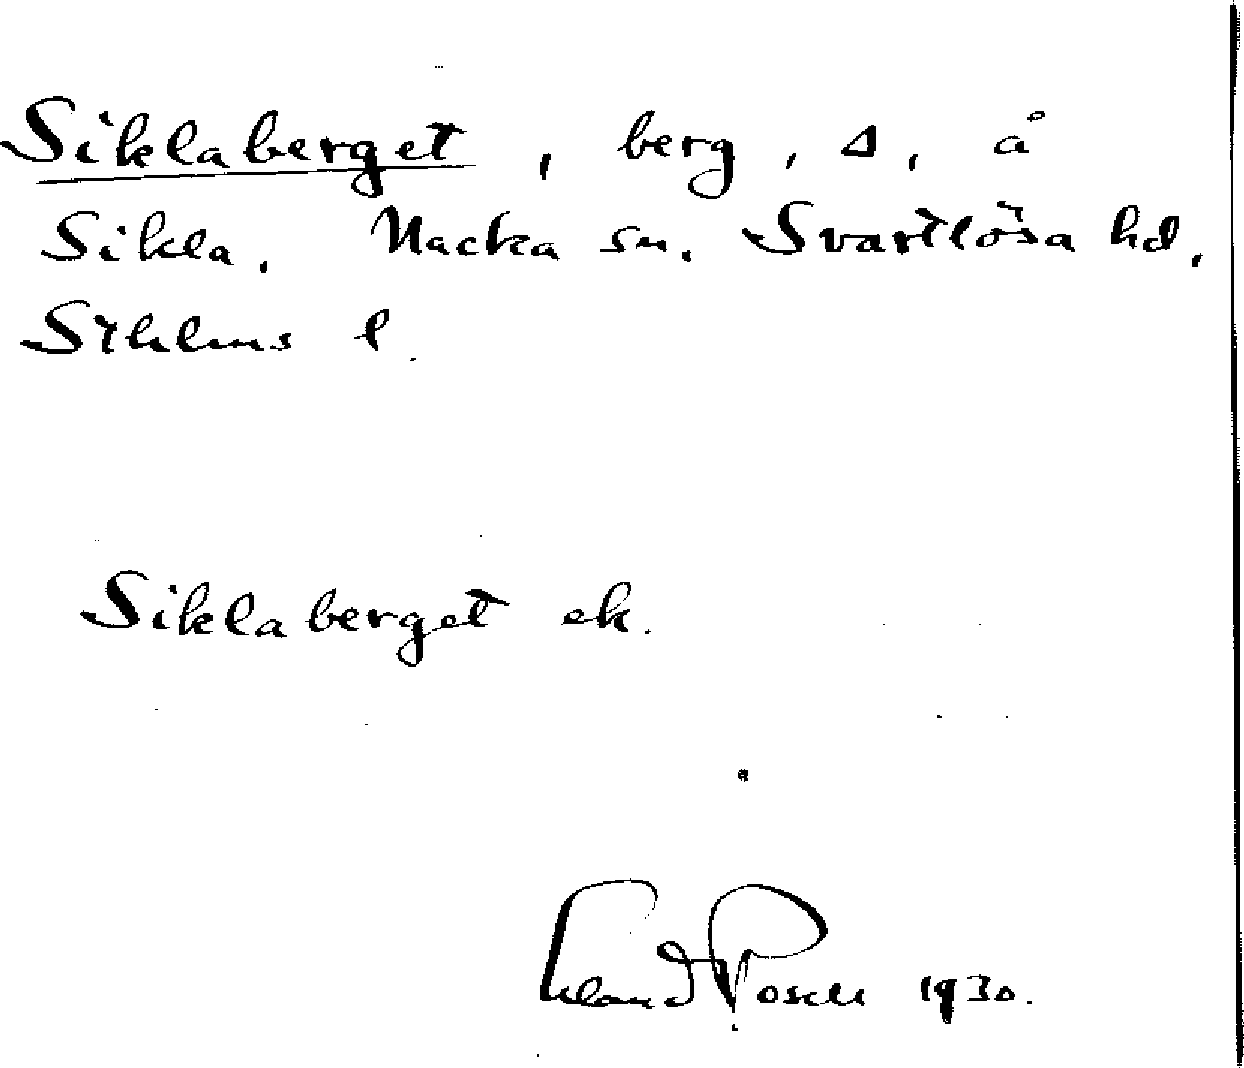 Siklaberget, berg, Δ, å
Sikla. Nacka sn. Svartlösa hd,
Sthlms l.
Siklaberget ek.
Erland Rosell 1930.